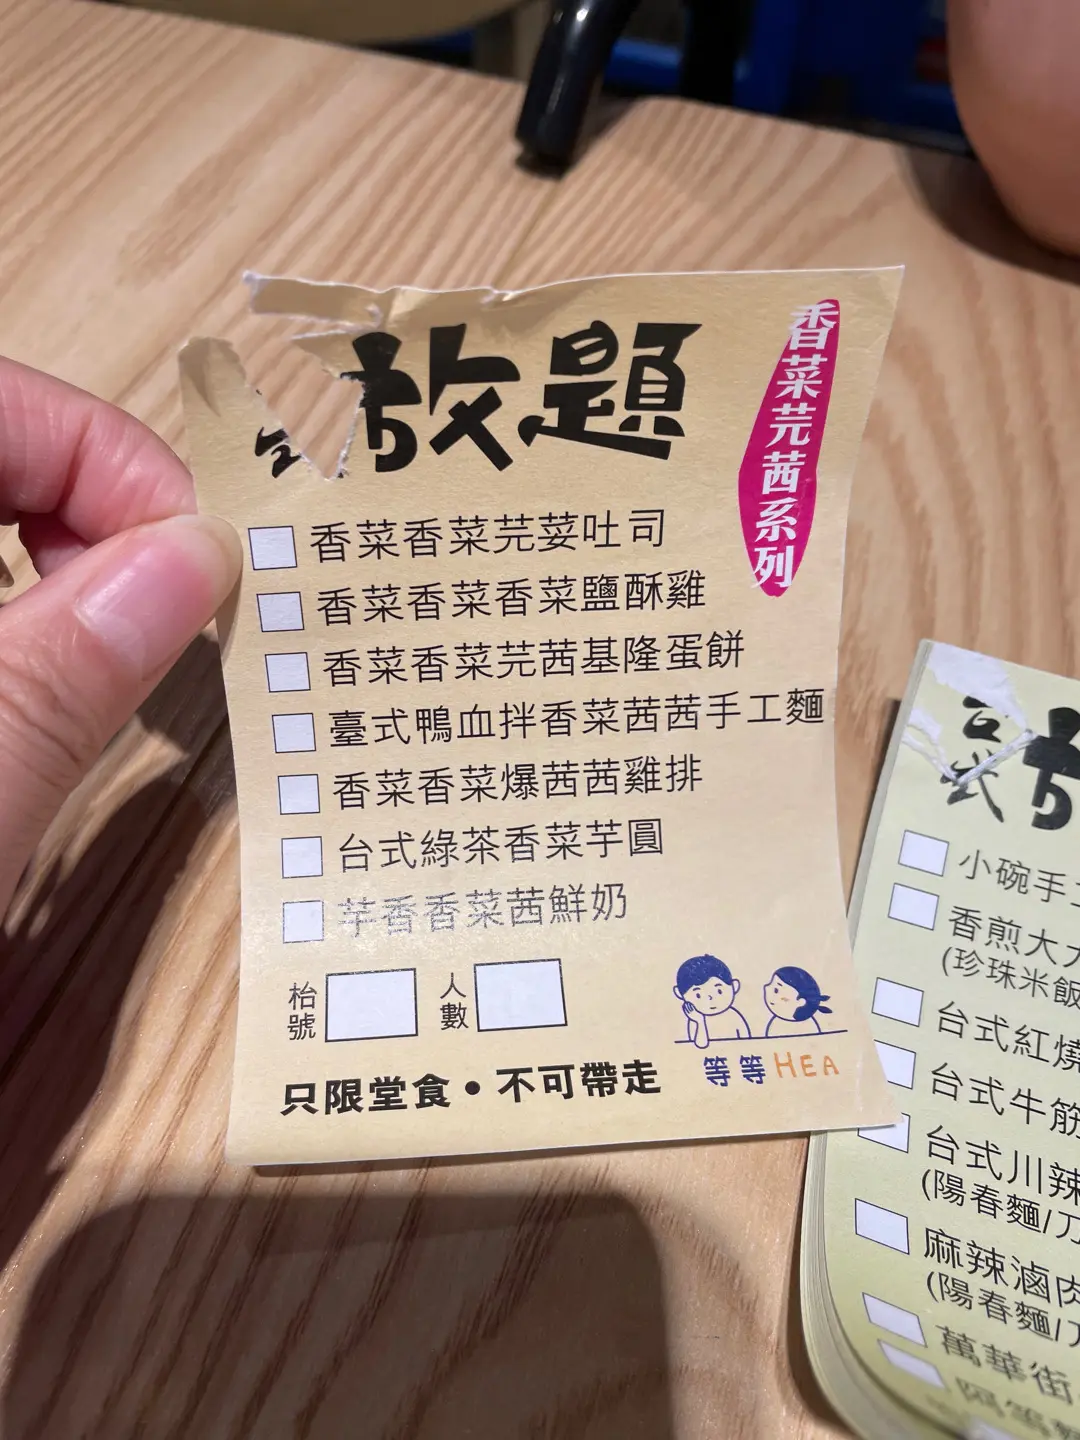 放題
香菜芫茜系列
香菜香菜芫荽吐司
香菜香菜香菜鹽酥雞
香菜香菜芫茜基隆蛋餅
臺式鴨血拌香菜茜茜手工麵
香菜香菜爆茜茜雞排
台式綠茶香菜芋圓
芋香香菜茜鮮奶
枱號
人數
等等HEA
只限堂食•不可帶走
式
小碗手
香煎大
(珍珠米飯
台式紅燒
台式牛筋
台式川辣
(陽春麵/刀
麻辣滷肉
(陽春麵/刀
萬華街